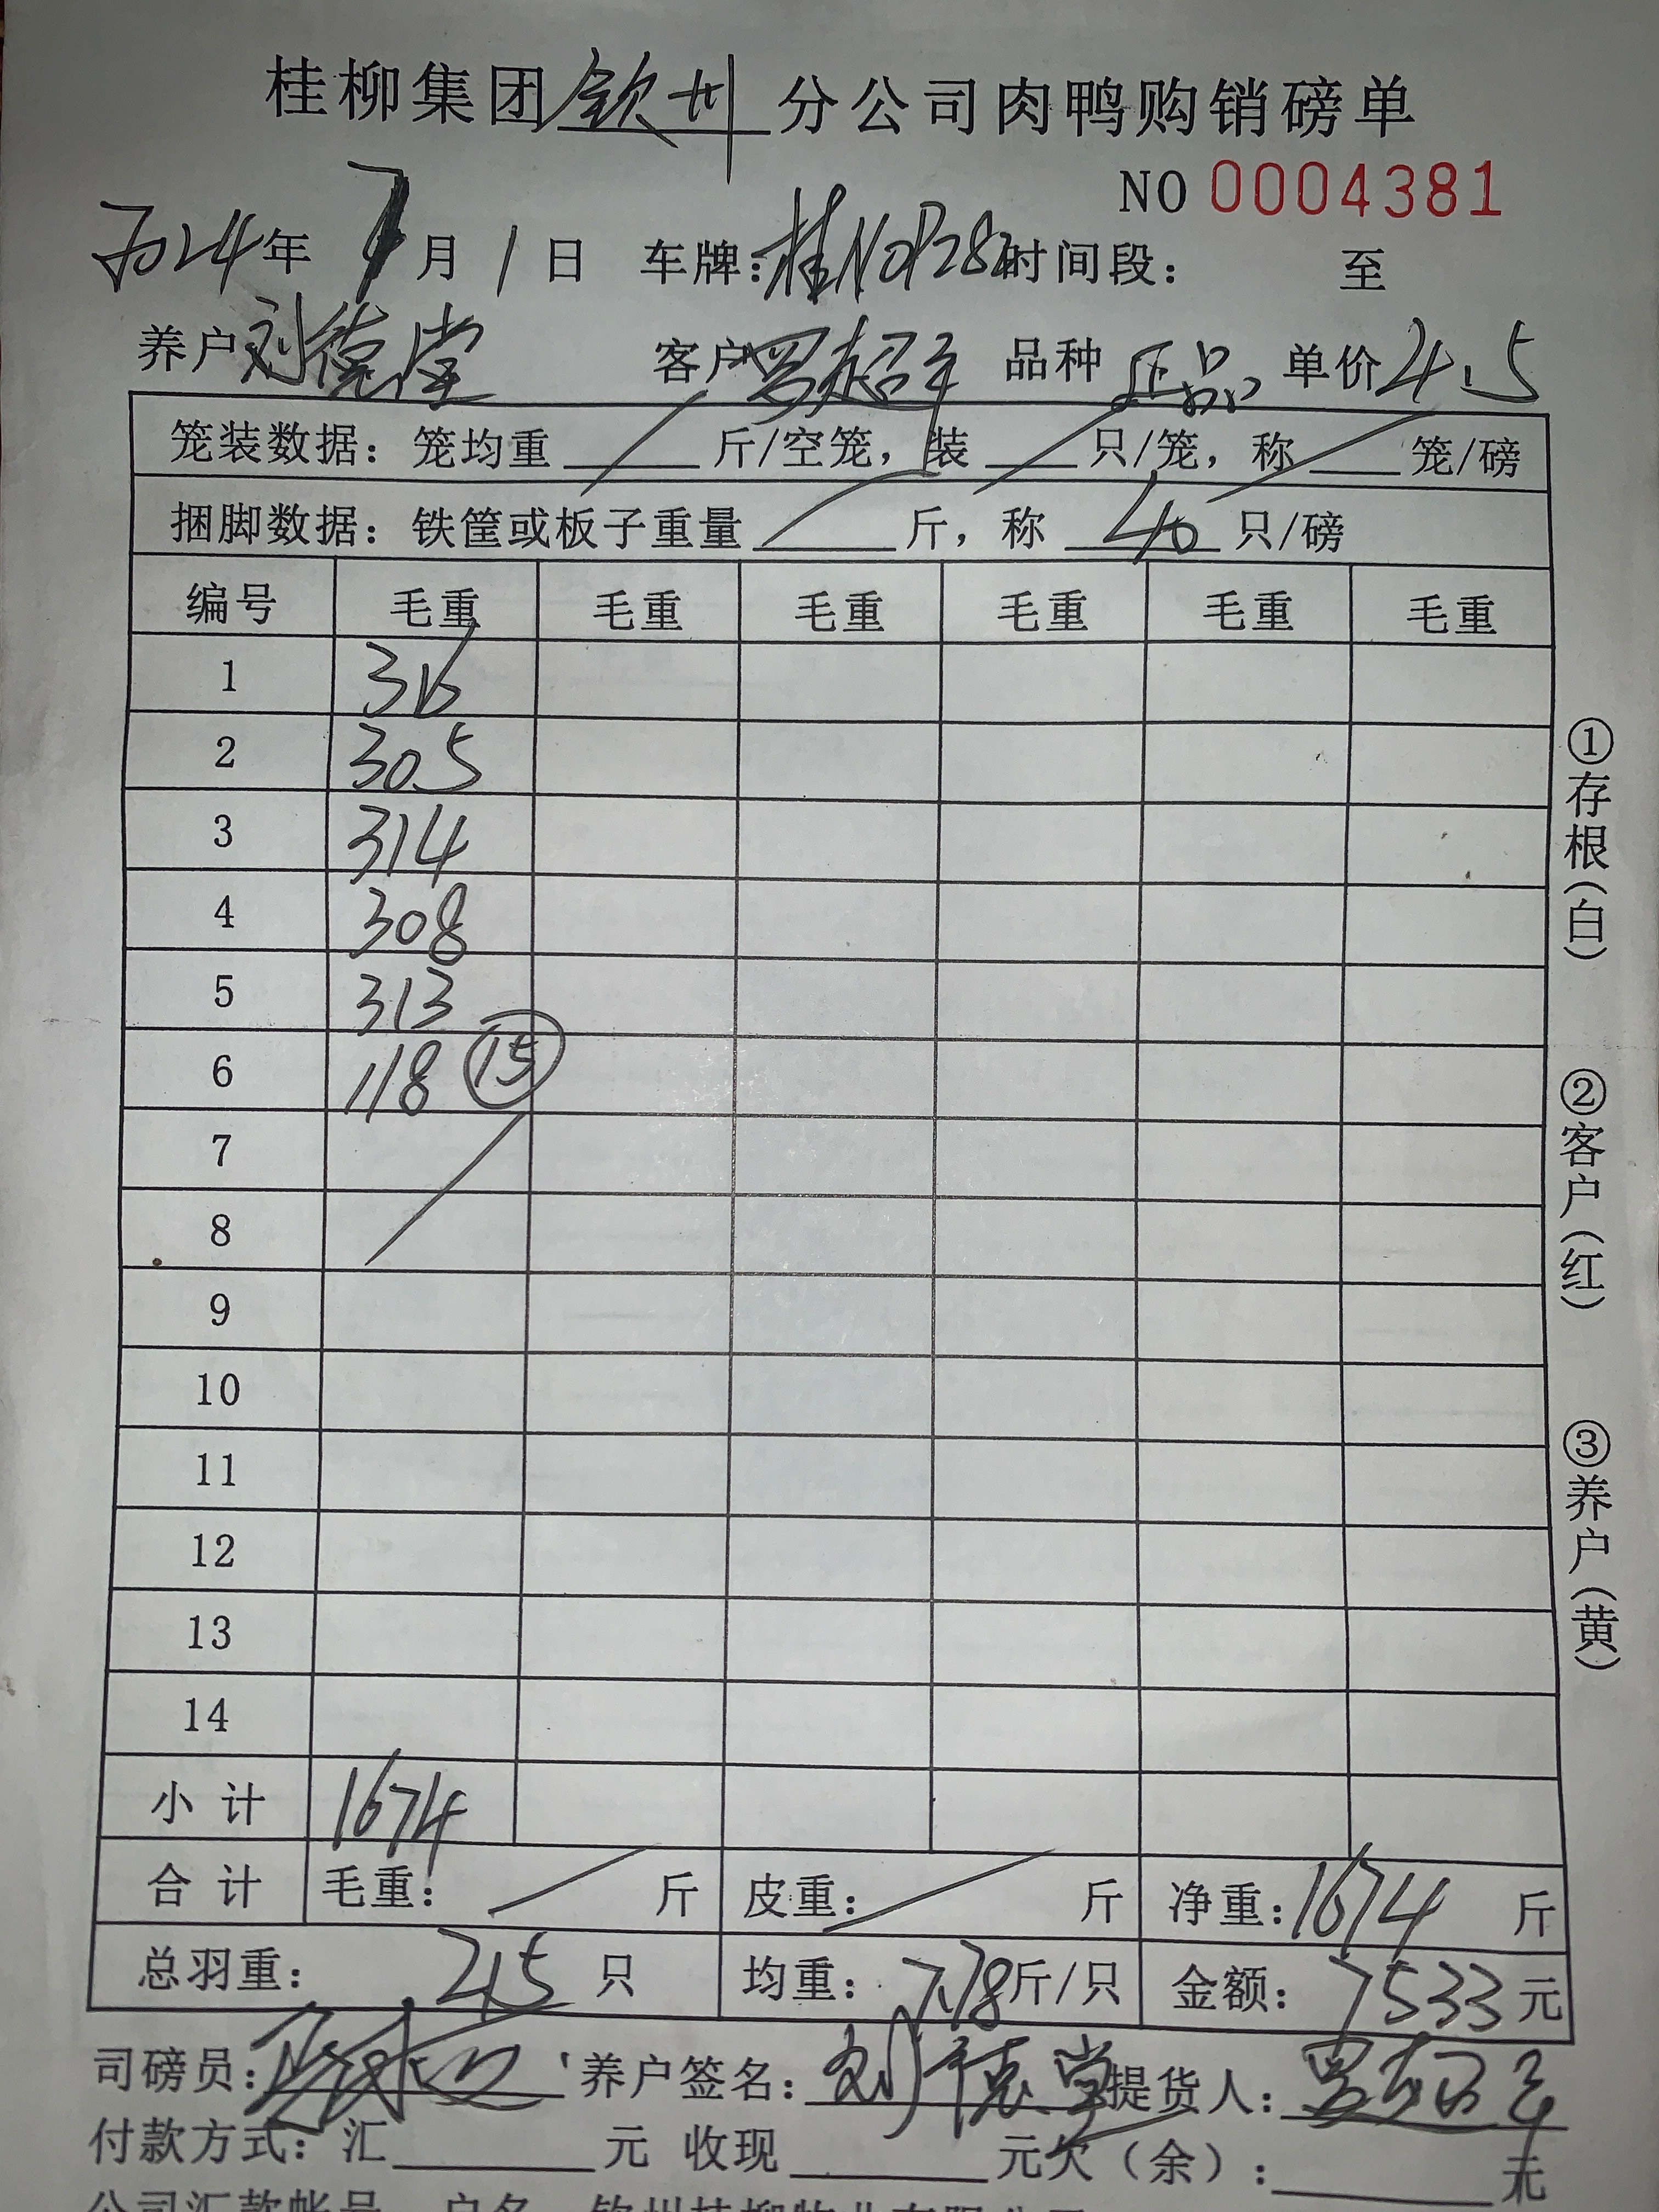 桂柳集团钦州分公司肉鸭购销磅单
NO 0004381
2024年 7月 1日 车牌：桂N0P282 时间段： 至
养户 刘德堂 客户 罗超 品种 正品 单价 4.5
笼装数据：笼均重 / 斤/空笼，装 / 只/笼，称 / 笼/磅
捆脚数据：铁筐或板子重量 / 斤，称 40 只/磅
编号 毛重 毛重 毛重 毛重 毛重 毛重
1 316
2 305
3 314
4 308
5 313
6 118 ⑮
7
8
9
10
11
12
13
14
小计 1674
合计 毛重： / 斤 皮重： / 斤 净重：1674 斤
总羽重： 215 只 均重：7.78斤/只 金额：7533元
司磅员： 养户签名：刘德堂 提货人：罗超
付款方式：汇 元 收现 元欠（余）： 元
①存根（白）
②客户（红）
③养户（黄）